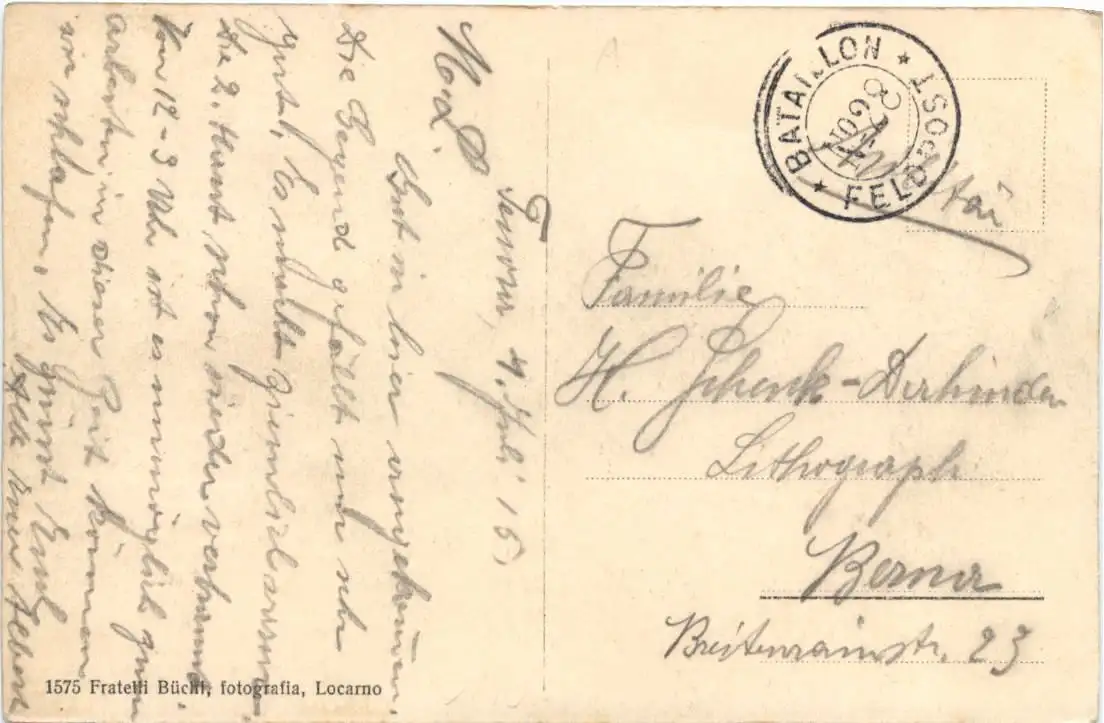 4. Juli 15.
Gut in hier angekommen.
Die Gegend gefällt mir sehr
gut. Es macht ziemlich warm.
Die 2. Haut schon wieder verbrannt.
Von 12-3 Uhr ist es unmöglich zum
arbeiten, in dieser Zeit können
wir schlafen. Es grüsst Euch
Alle Euer Albert
1575 Fratelli Büchi, fotografia, Locarno
★ BATAILLON ★ FELDPOST
No 28
Familie
H. Schenk-Derhinden
Lithograph
Berna
Breitenrainstr. 23